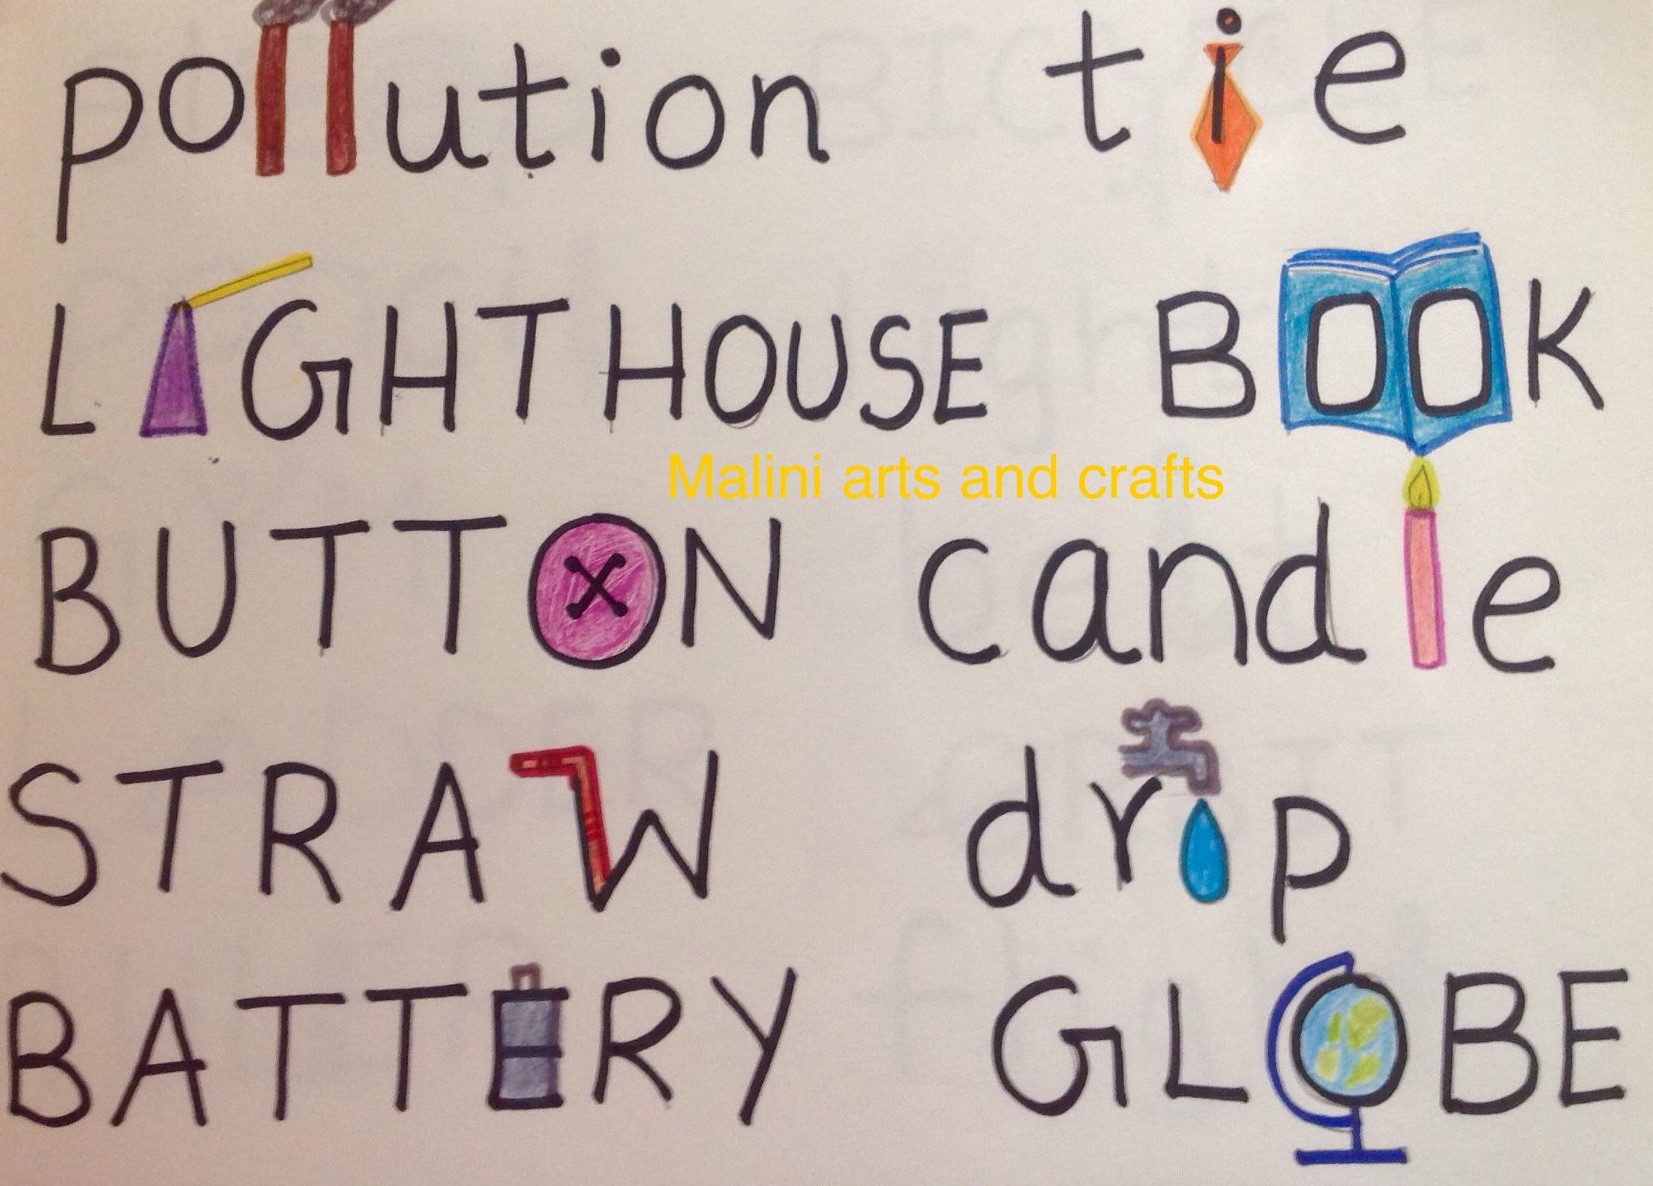 pollution tie
LIGHTHOUSE BOOK
Malini arts and crafts
BUTTON candle
STRAW drip
BATTERY GLOBE